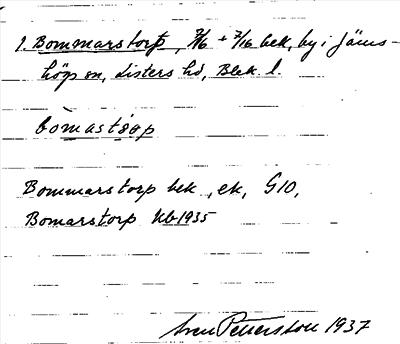 1. Bommarstorp, 7/16 + 7/16 bek, by i Jäms-
högs sn, Listers hd, Blek. l.
bomastorp
Bommarstorp bek, ek, G10,
Bomarstorp Ub 1935
Sven Petersson 1937